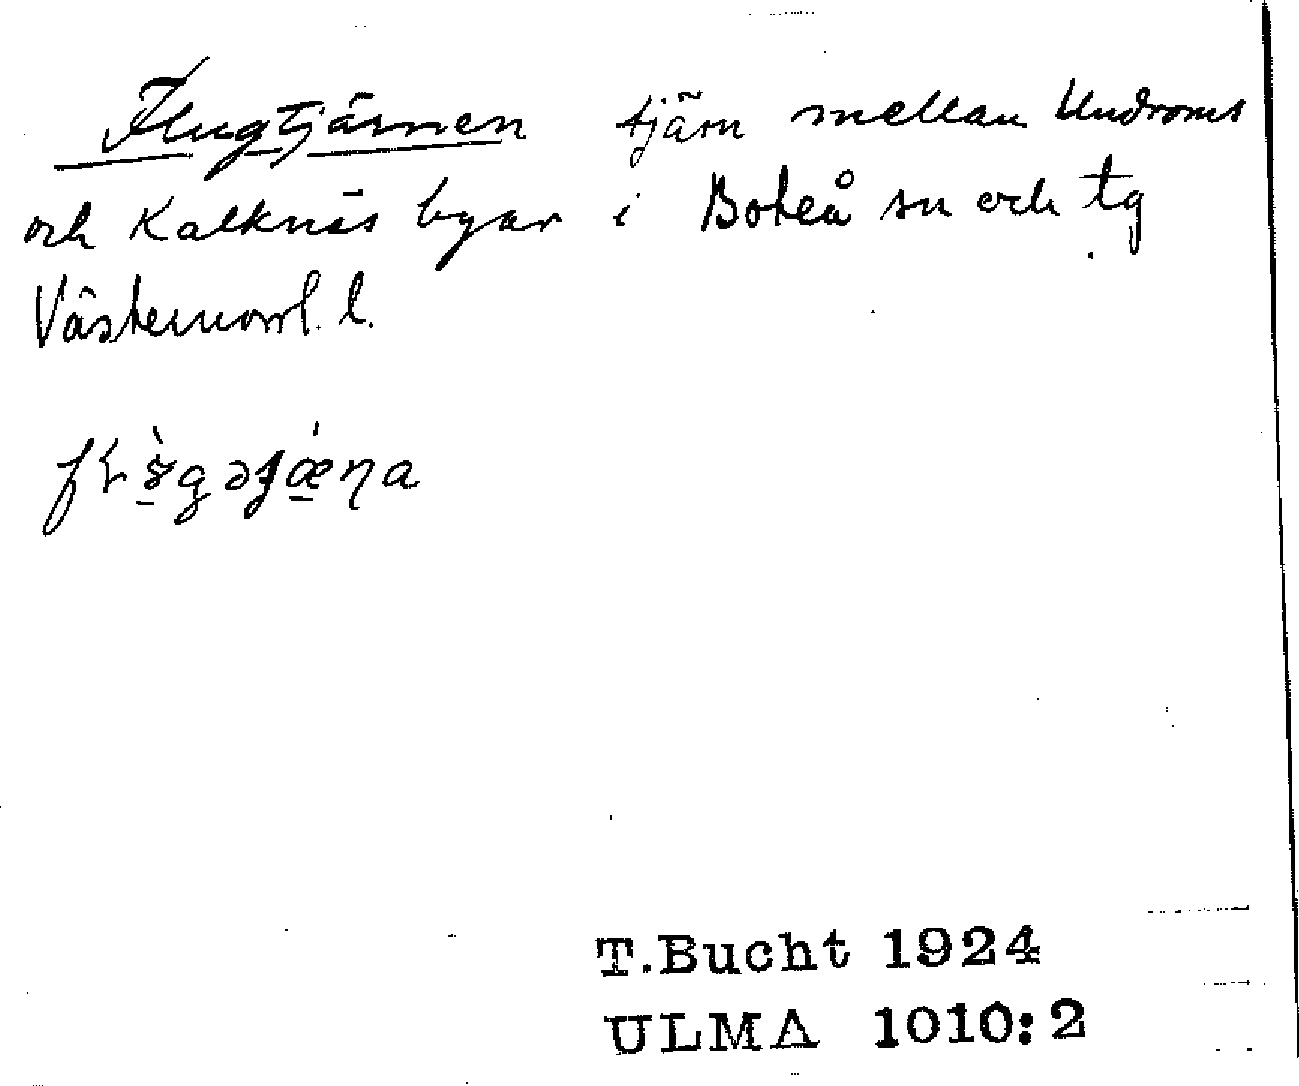 Flugtjärnen tjärn mellan Undroms
och Kalknäs byar i Boteå sn och tg
Västernorrl. l.
T.Bucht 1924
ULMA 1010:2